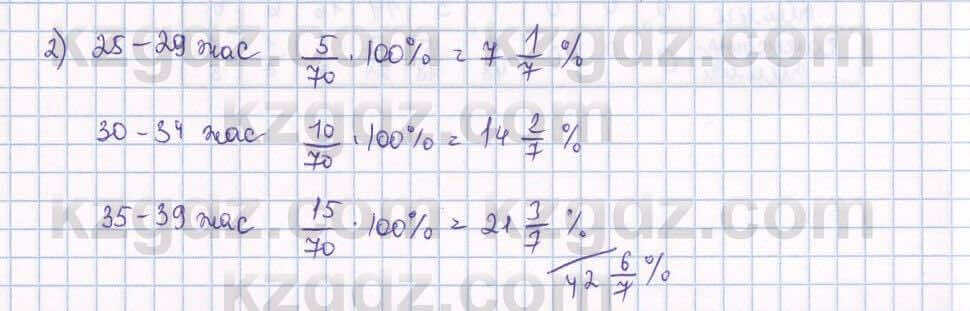 2) 25 – 29 жас 5/70 · 100% = 7 1/7 %
30 – 34 жас 10/70 · 100% = 14 2/7 %
35 – 39 жас 15/70 · 100% = 21 3/7 %
42 6/7 %
kzgdz.com kzgdz.com
kzgdz.com
kzgdz.com kzgdz.com
kzgdz.com